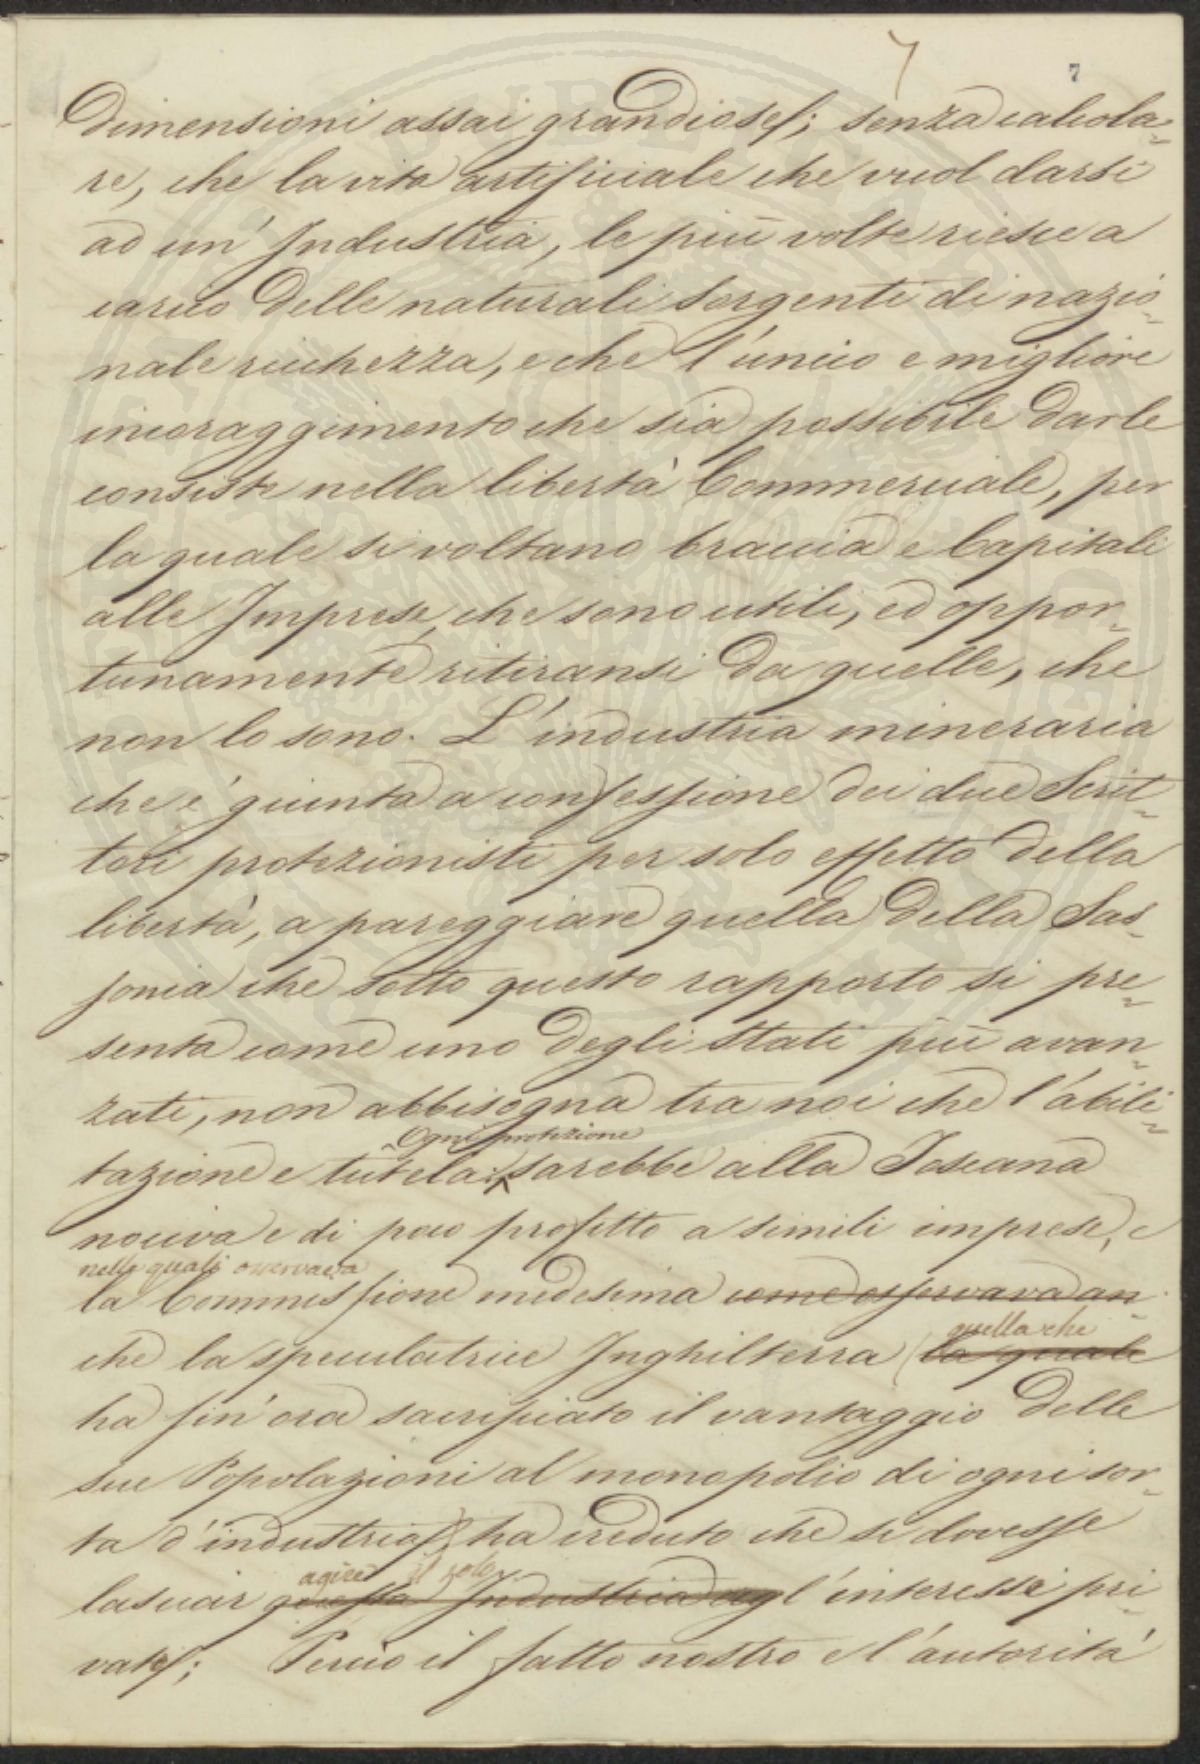 7 7
dimensioni assai grandiose; senza calcola=
re, che la vita artificiale che vuol darsi
ad un' Industria, le più volte riesce a
carico delle naturali sorgenti di nazio=
nale ricchezza, e che l'unico e migliore
incoraggimento che sia possibile darle
consiste nella libertà Commerciale, per
la quale si voltano braccia e Capitali
alle Imprese che sono utili, ed oppor=
tunamente ritiransi da quelle, che
non lo sono. L'industria mineraria
che è giunta a confessione dei due Scrit=
tori protezionisti per solo effetto della
libertà, a pareggiare quella della Sas=
sonia che sotto questo rapporto si pre=
senta come uno degli Stati più avan=
zati, non abbisogna tra noi che l'abili=
Ogni protezione
tazione e tutela: sarebbe alla Toscana
nociva e di poco profitto a simili imprese, e
nelle quali osservava
la Commissione medesima come osservava an=
quella che
che la speculatrice Inghilterra (la quale
ha fin' ora sacrificato il vantaggio delle
sue Popolazioni al monopolio di ogni sor=
ta d'industria) ha creduto che si dovesse
agire il solo
lasciar questa Industria agl'interessi pri=
vati; Perciò il fatto nostro e l'autorità